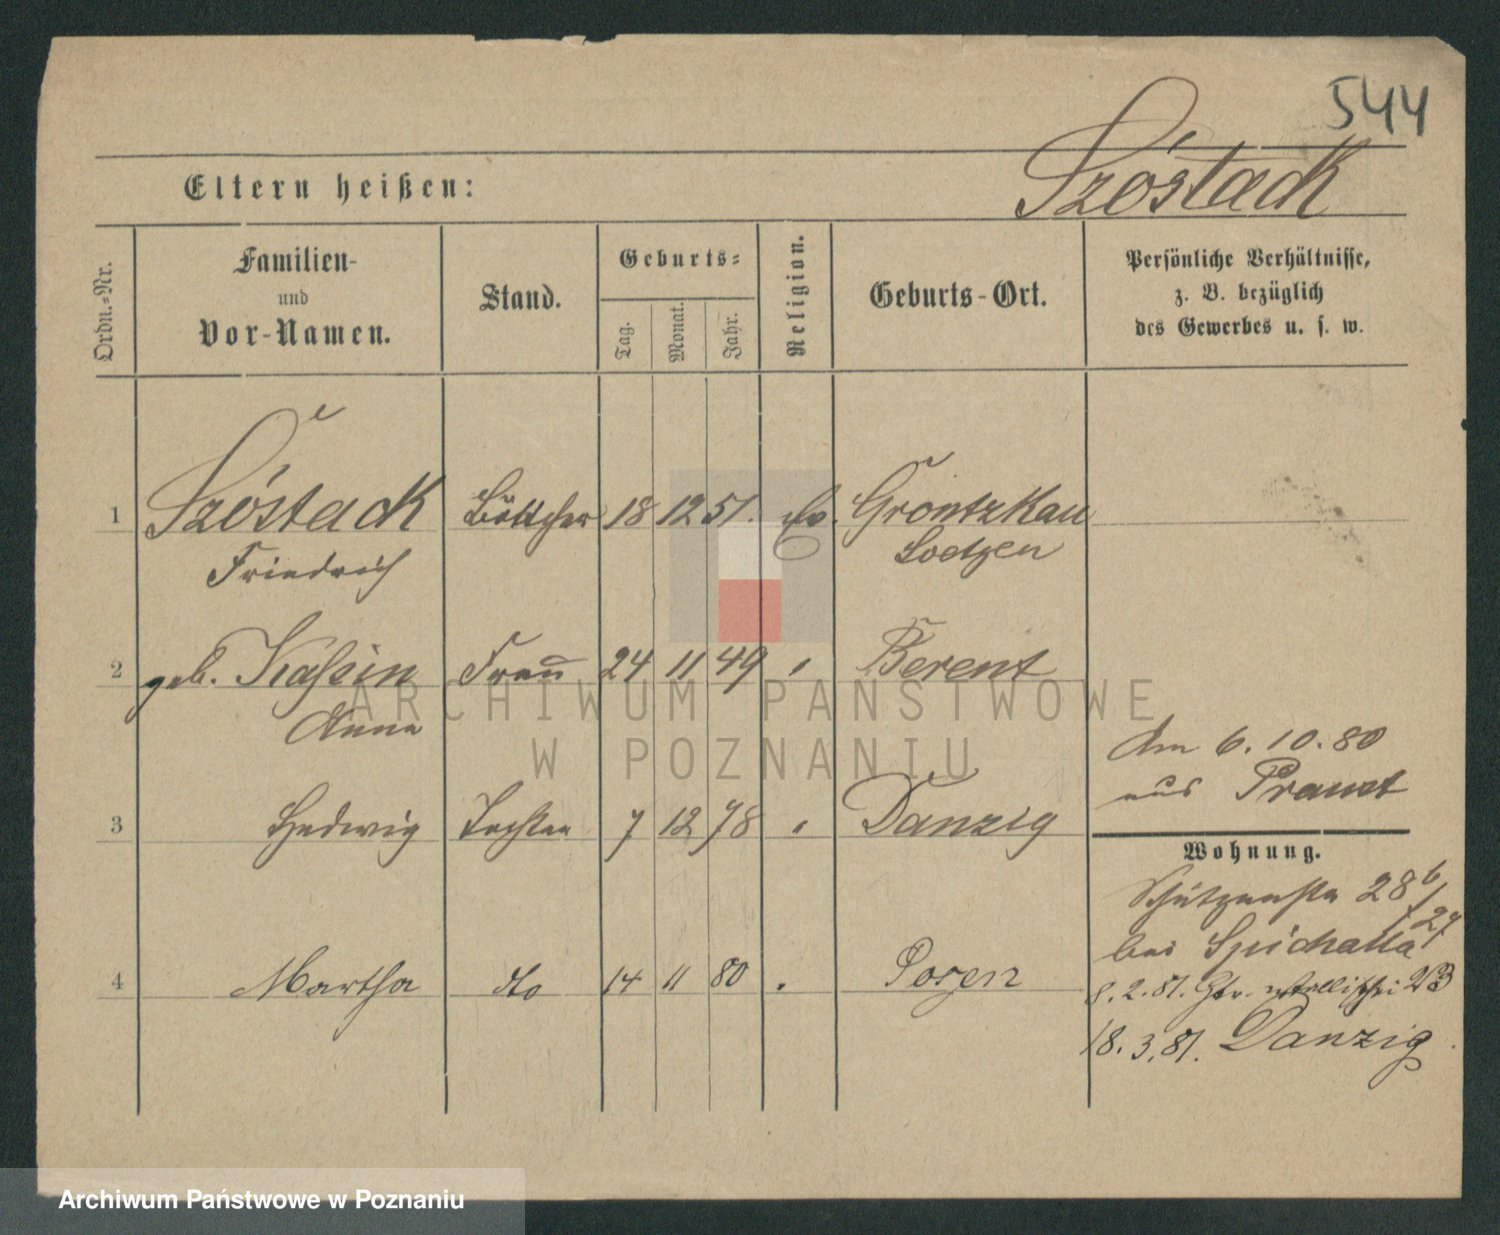 544
Szóstack
Eltern heißen:
Ordn.-Nr.
Familien-
und
Vor-Namen.
Stand.
Geburts-
Tag.
Monat.
Jahr.
Religion.
Geburts-Ort.
Persönliche Verhältnisse,
z. B. bezüglich
des Gewerbes u. s. w.
1 Szóstack Böttcher 18 12 51. Ev. Grontzkau
Friedrich Loetzen
2 geb. Kassin Frau 24 11 49 " Berent
Anna
3 Hedwig Tochter 7 12 78 " Danzig
4 Martha dto 14 11 80 " Posen
Am 6.10.80
aus Praust
Wohnung.
Schützenstr 28 b/
bei Spichalla 27
8.2.81. Gr. 23
18.3.81. Danzig.
ARCHIWUM PAŃSTWOWE
W POZNANIU
Archiwum Państwowe w Poznaniu